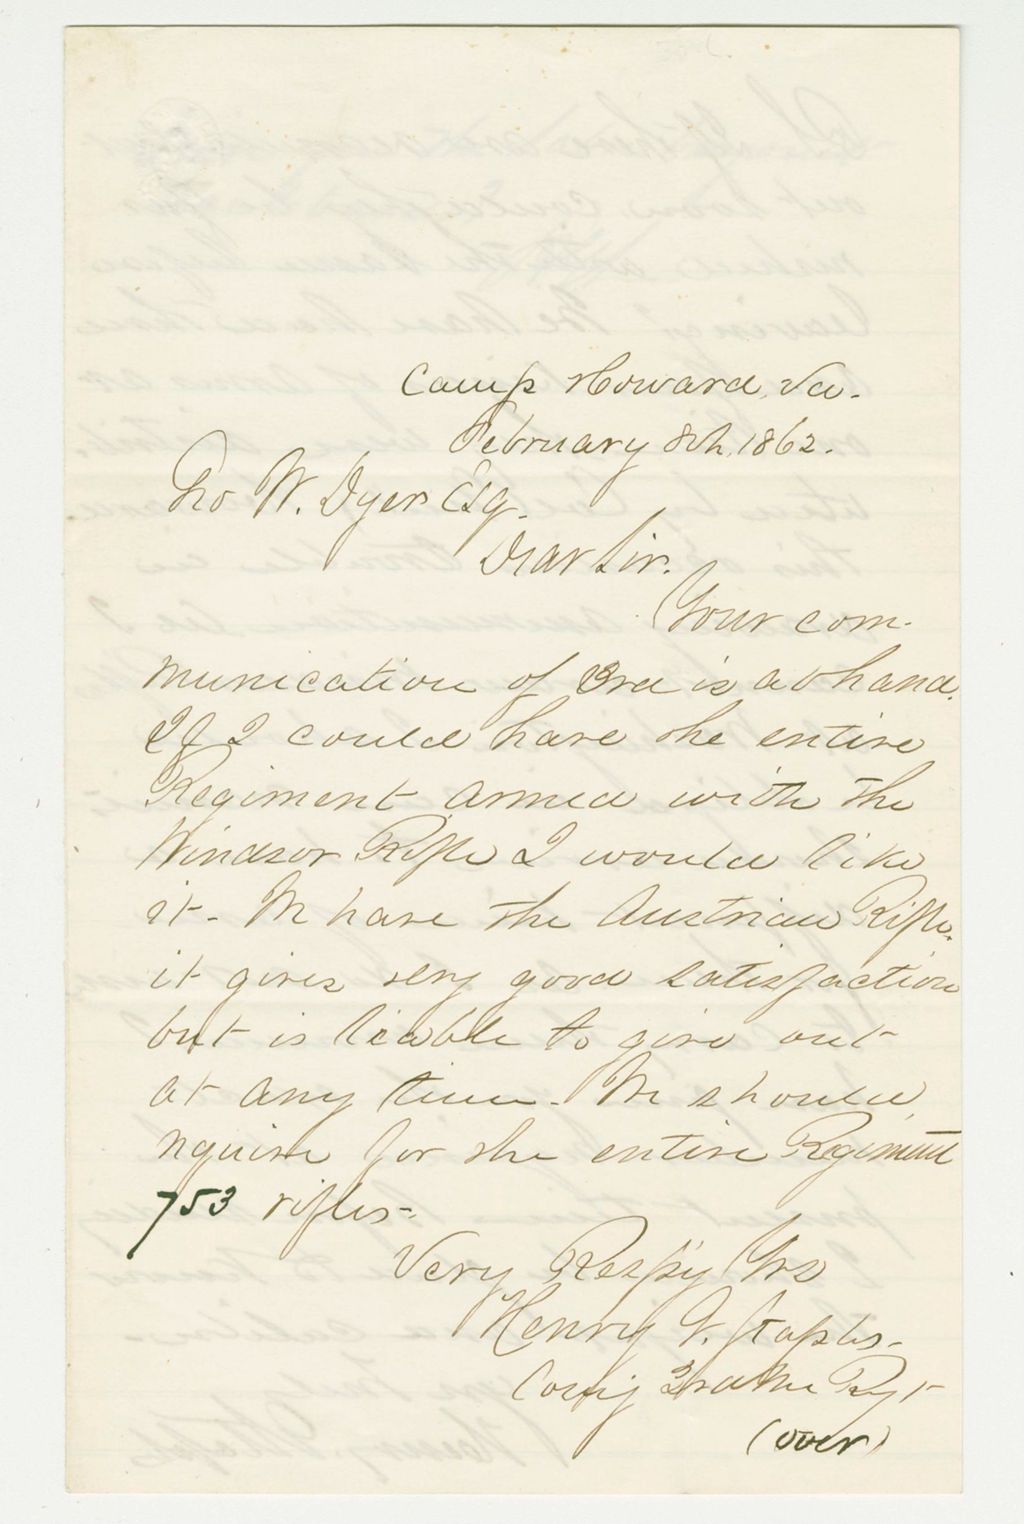 Camp Howard, Va.
February 8th, 1862.
Geo W. Dyer Esq.
Dear Sir.
Your com-
munication of 3rd is at hand.
If I could have the entire
Regiment armed with the
Windsor Rifle I would like
it - We have the Austrian Rifle.
it gives very good satisfaction
but is liable to give out
at any time. We should
require for the entire Regiment
753 rifles-
Very Resp'y Yrs
Henry G. Staples-
Comg 3rd Me Regt
(over)